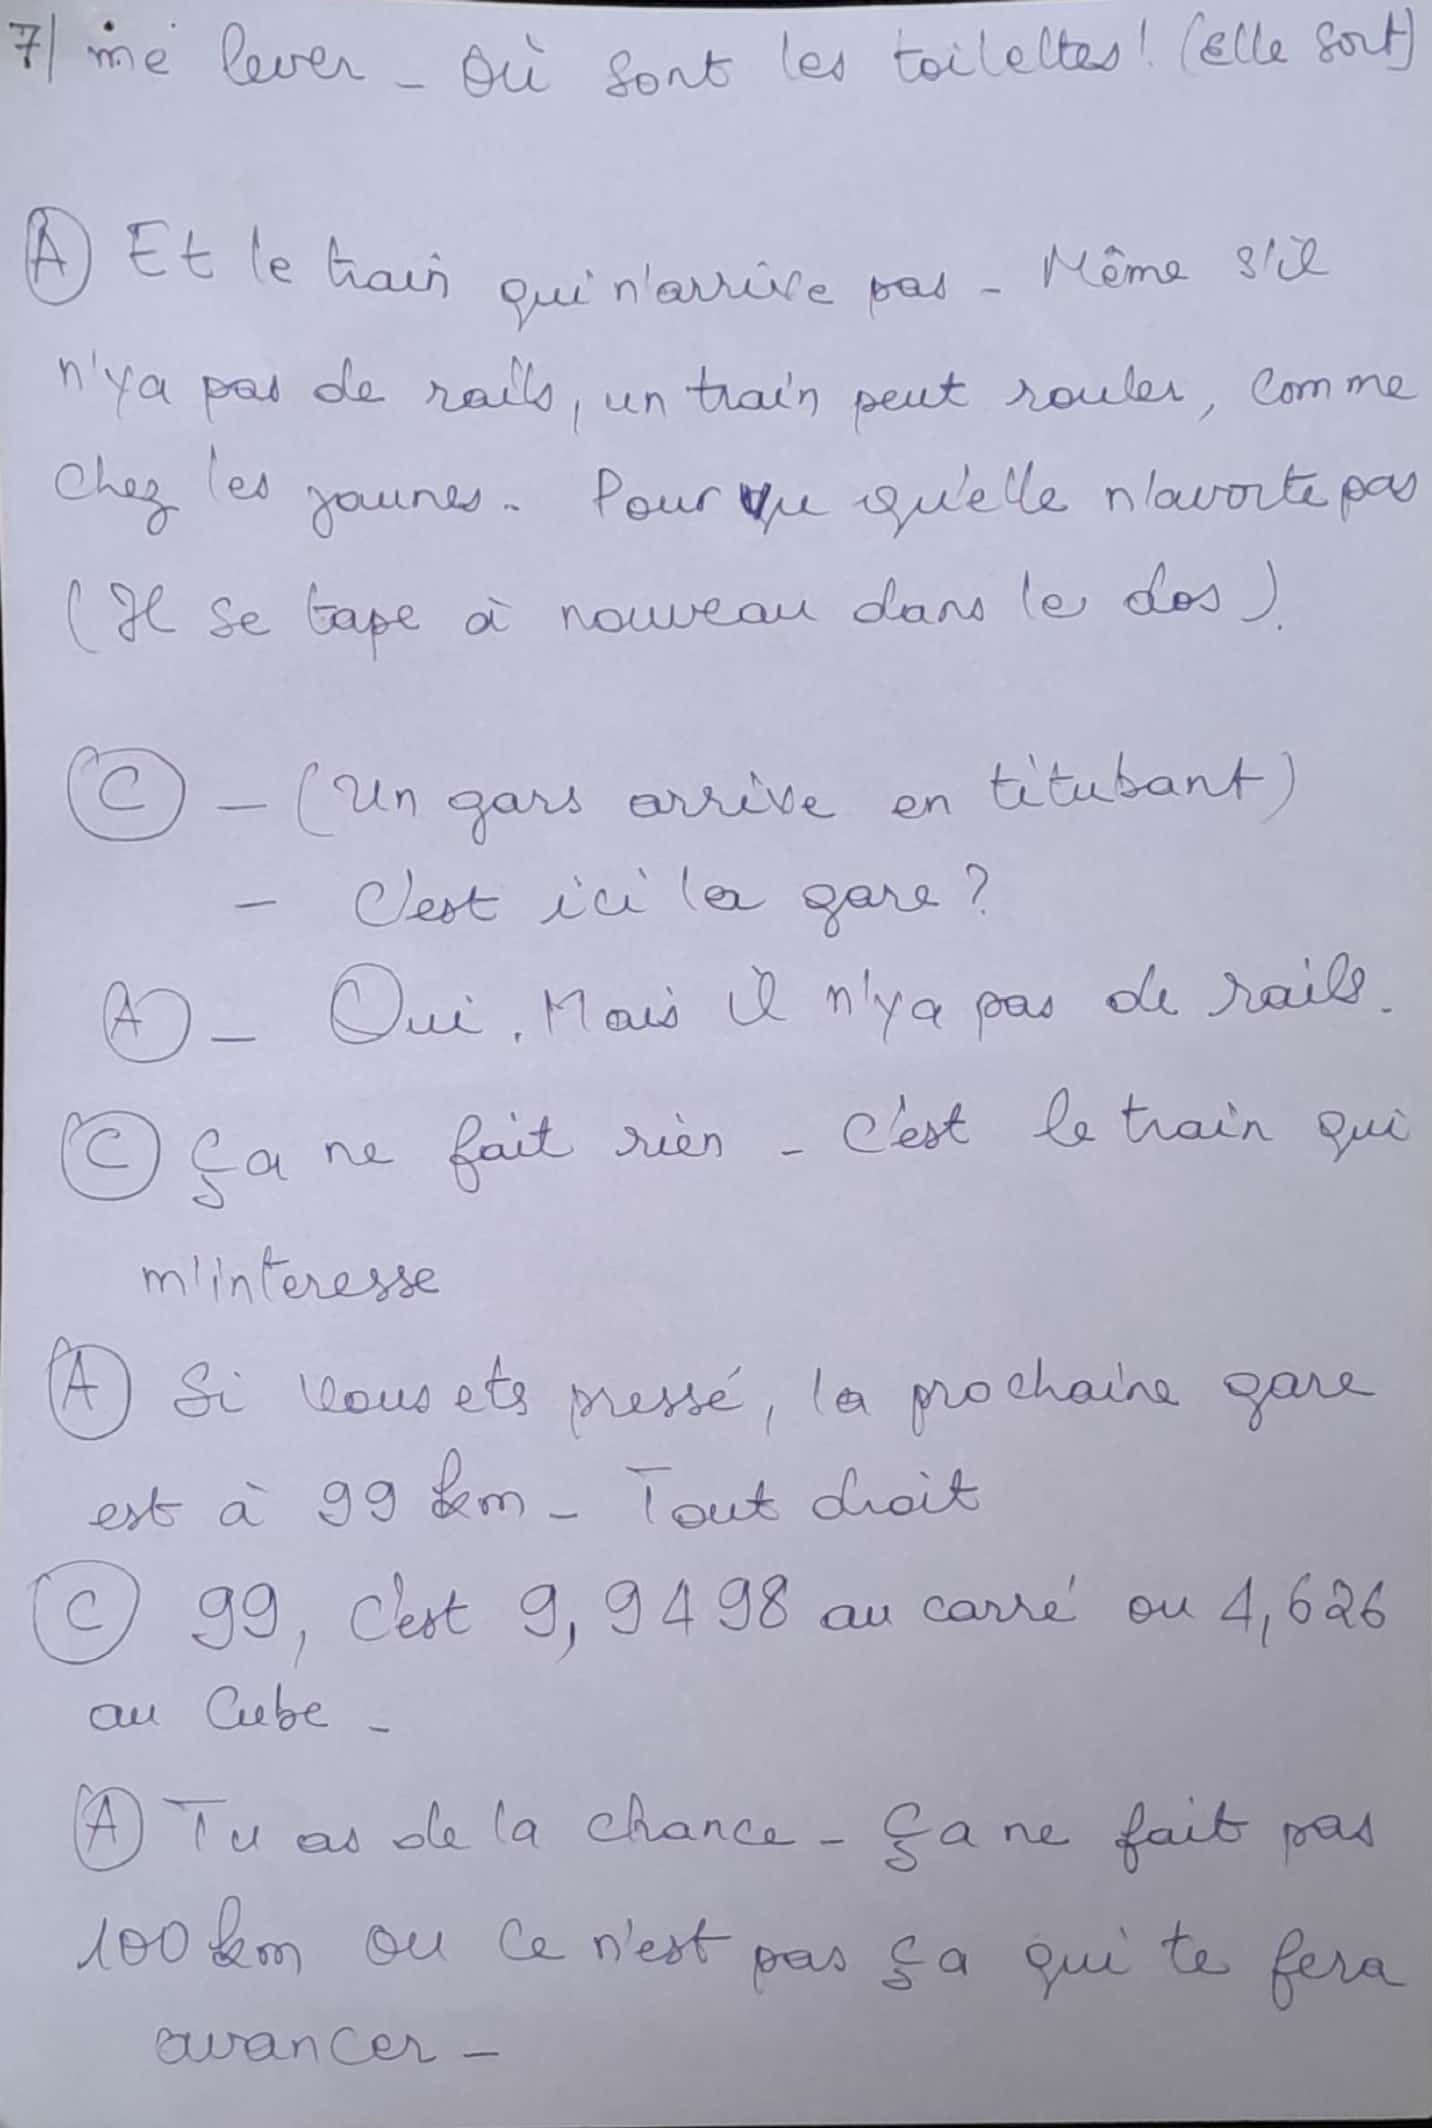 7/ me lever - Où sont les toilettes! (Elle sort)
(A) Et le train qui n'arrive pas - Même s'il
n'ya pas de rails, un train peut rouler, comme
chez les jaunes.. Pourvu qu'elle n'avorte pas
(Il se tape à nouveau dans le dos).
(C) - (Un gars arrive en titubant)
- C'est ici la gare?
(A) - Oui. Mais il n'ya pas de rails.
(C) Ça ne fait rien - C'est le train qui
m'interesse
(A) Si vous ets pressé, la prochaine gare
est à 99 km - Tout droit
(C) 99, c'est 9,9498 au carré ou 4,626
au Cube -
(A) Tu as de la chance - Ça ne fait pas
100 km ou ce n'est pas ça qui te fera
avancer -